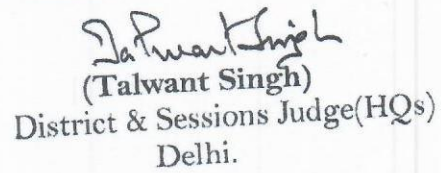 Talwant Singh
(Talwant Singh)
District & Sessions Judge(HQs)
Delhi.